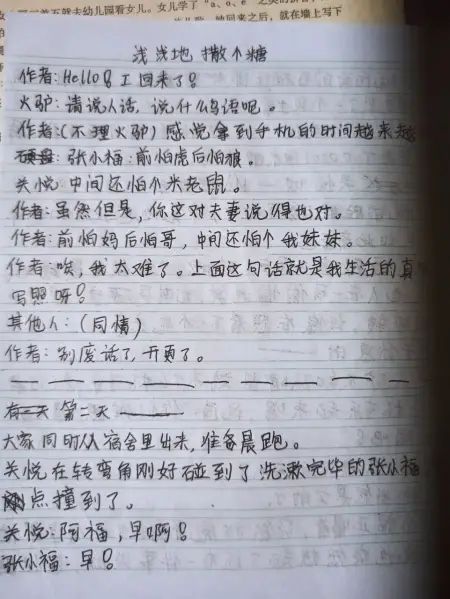 一首就去幼儿园看女儿。女儿学了"a、o、e"之类的拼音
她回来之后，就在墙上写下
浅浅地 撒个糖
作者：Hello！I回来了！
火驴：请说人话，说什么鸟语呢。
作者：（不理火驴）感觉拿到手机的时间越来越
张小福：前怕虎后怕狼。
关悦 中间还怕个米老鼠。
作者：虽然但是，你这对夫妻说得也对。
作者：前怕妈后怕哥，中间还怕个我妹妹。
作者：唉，我太难了。上面这句话就是我生活的真
写照呀！
其他人：（同情）
作者：别废话了，开页了。
第二天
大家同时从宿舍里出来，准备晨跑。
关悦在转弯角刚好碰到了洗漱完毕的张小福
点撞到了。
关悦：阿福，早啊！
张小福：早！